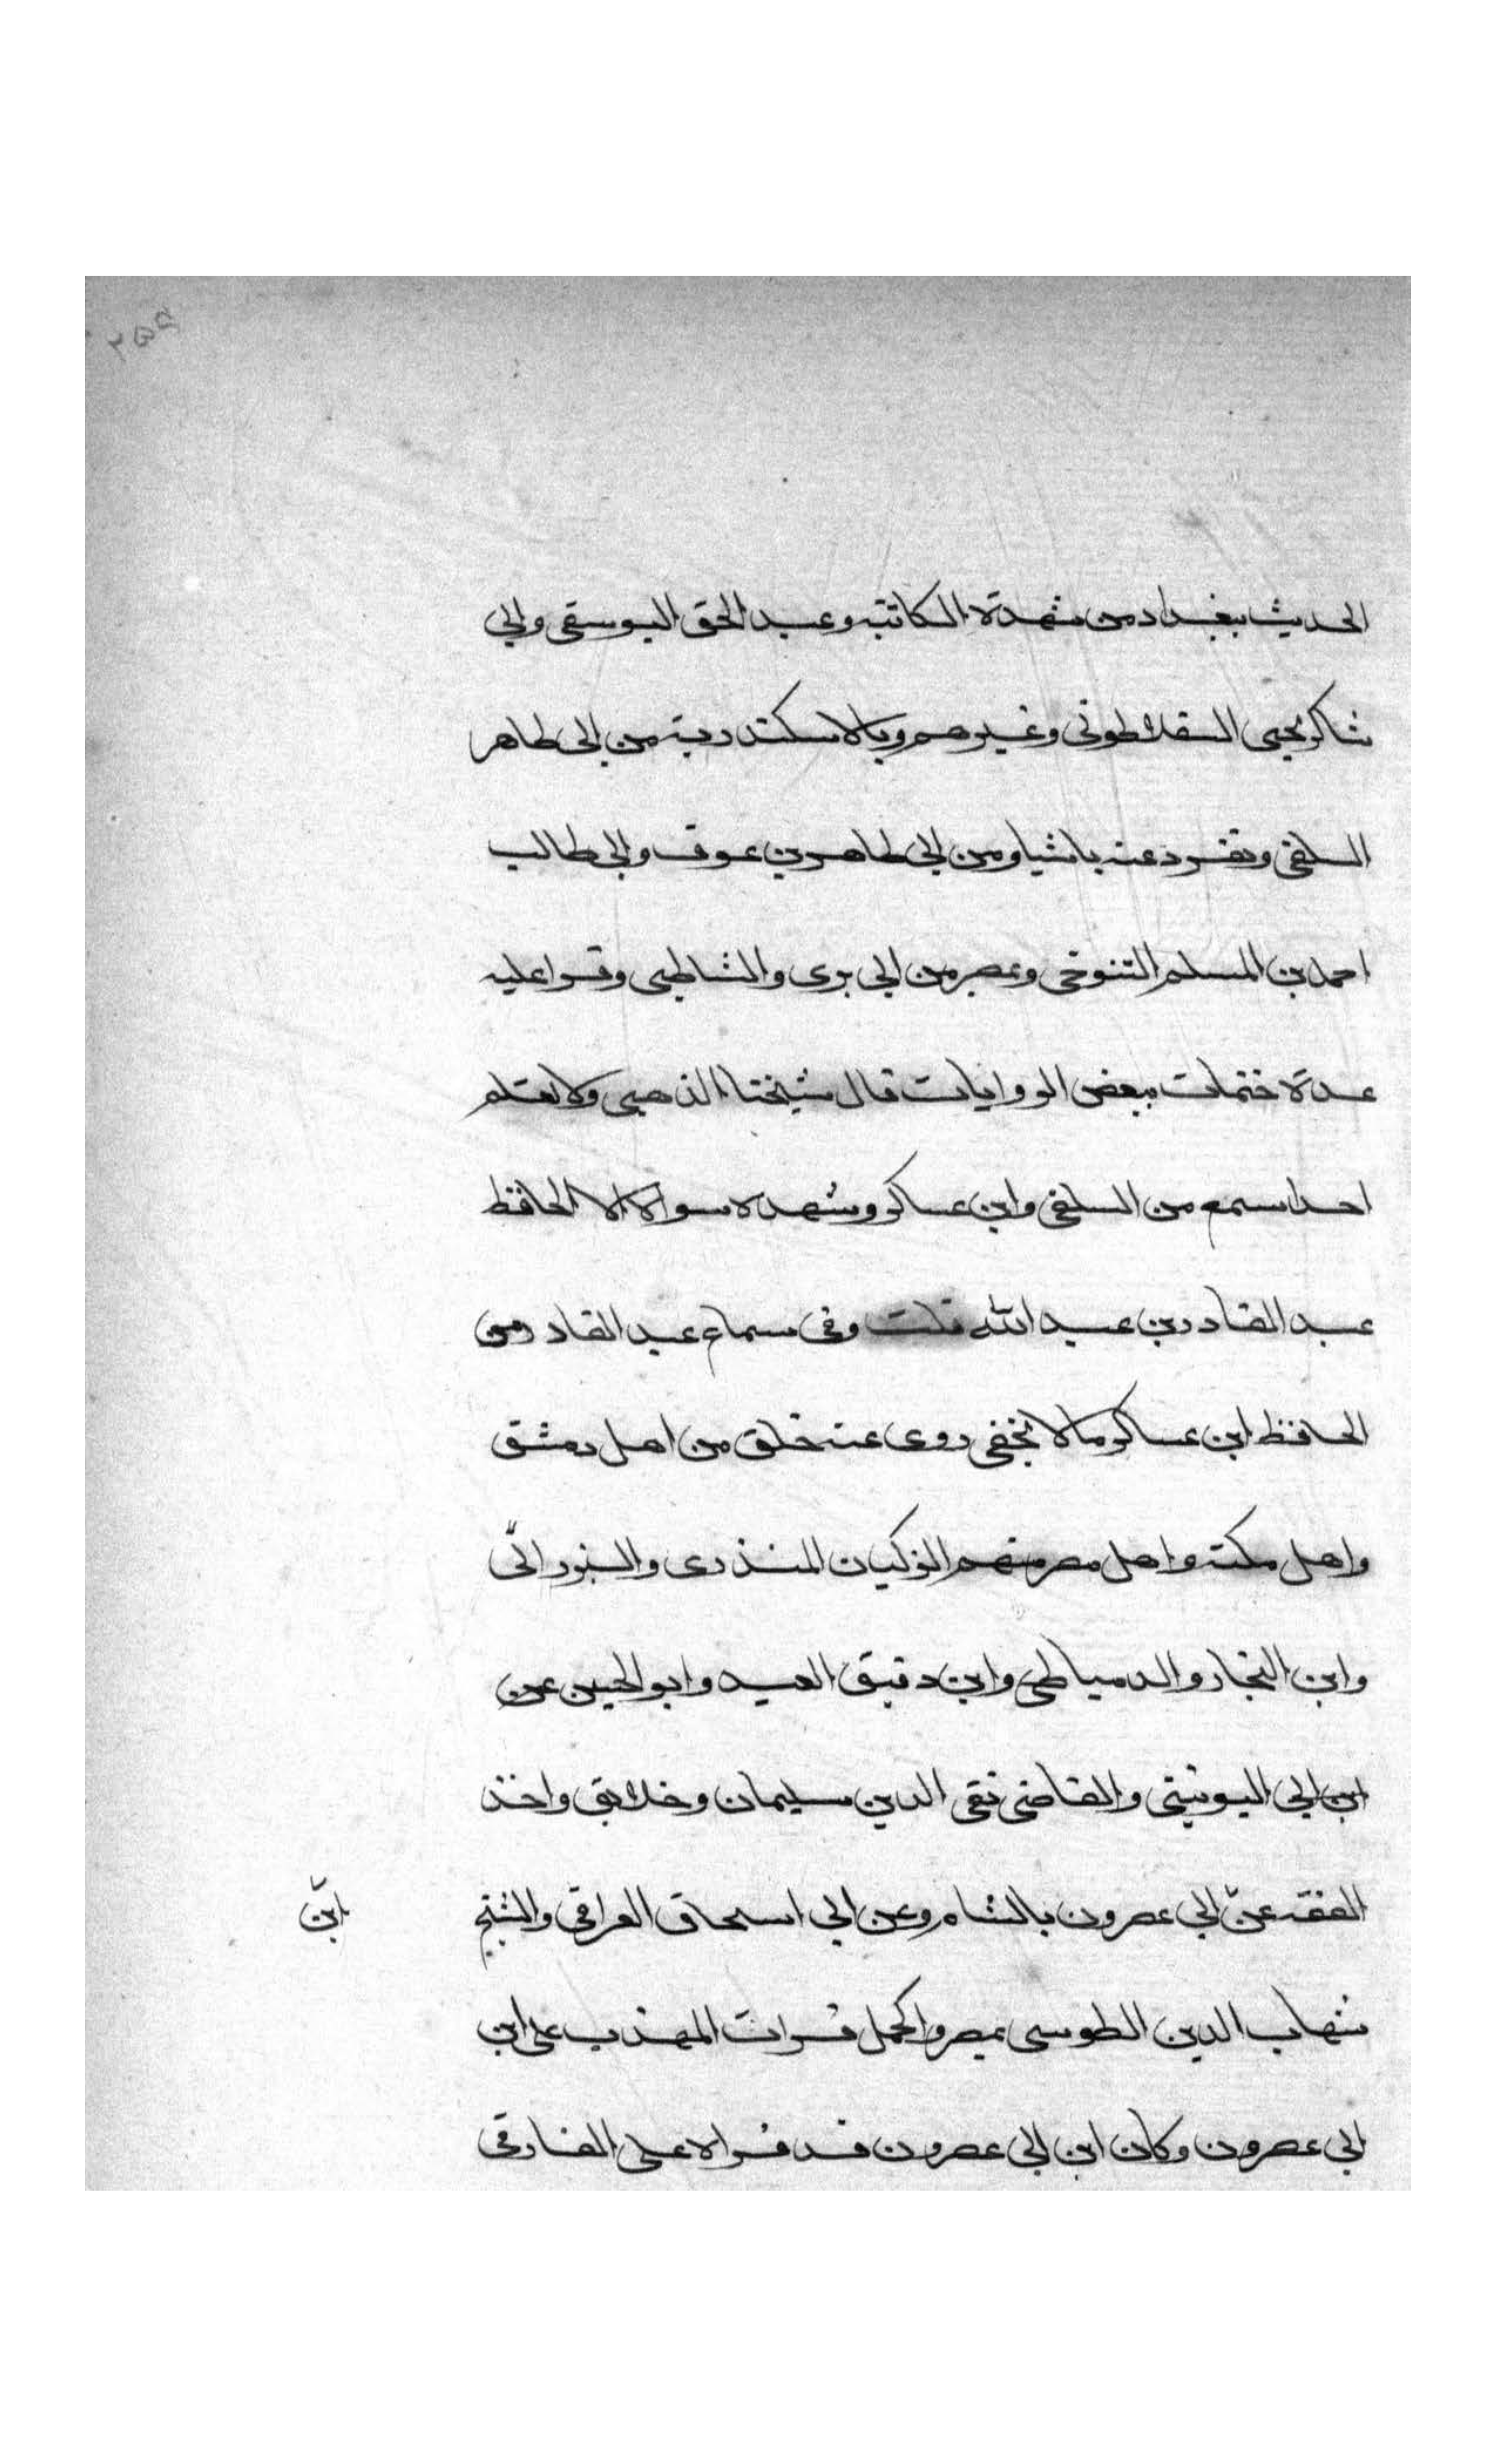 ٢٥٥
الحديث ببغداد من شهدة الكاتبة وعبد الحق اليوسفى وابي
شاكر يحيى السقلاطونى وغيرهم وبالاسكندرية من ابى طاهر
السلفى وتفرد عنه باشيا ومن ابي طاهر بن عوف وابي طالب
احمد بن المسلم التنوخى وبمصر من ابي برى والشاطبى وقرا عليه
عدة ختمات ببعض الروايات قال شيخنا الذهبى ولا نعلم
احدا سمع من السلفى وابن عساكر وشهدة سواه الا الحافظ
عبد القادر بن عبد الله قلت وفى سماع عبد القادر من
الحافظ ابن عساكر ما لا يخفى روى عنه خلق من اهل دمشق
واهل مكة واهل مصر منهم الزكيان المنذرى والبرزالى
وابن النجار والدمياطى وابن دقيق العيد وابو الحسين عن
ابن ابي اليونينى والقاضى تقى الدين سليمان وخلايق واخذ
الفقه عن ابي عصرون بالشام وعن ابي اسحاق العراقى والشيخ
ابن
شهاب الدين الطوسى بمصر واكمل قرات المهذب على ابن
ابي عصرون وكان ابن ابي عصرون قد قراه على الفارقى